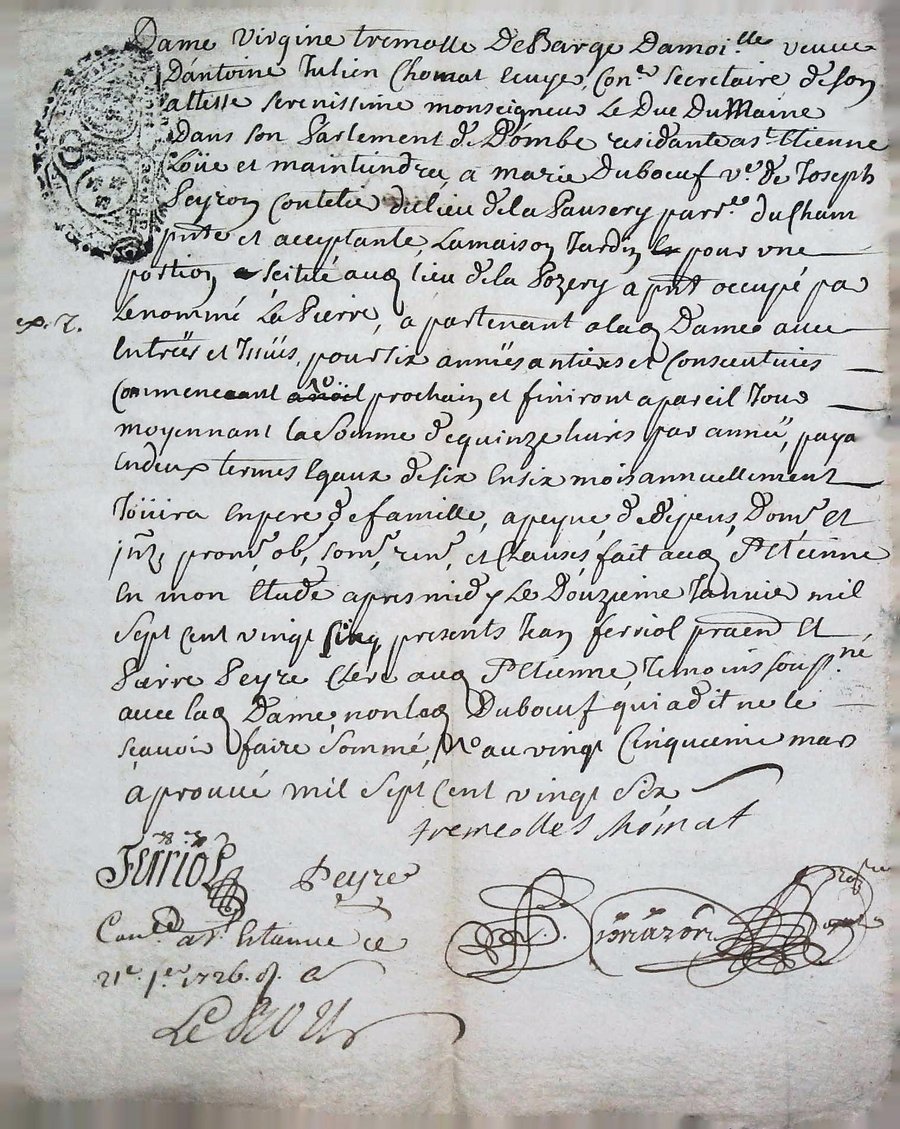 Dame Virgine tremolle DeBarge Damoi.lle veuve
D'antoine Julien Chomat Ecuye, Con.er Secretaire de son
altesse serenissime monseigneur Le Duc Du Maine
Dans son Parlement de Dombe residante a st Etienne
Loüe et maintiendra a marie Duboeuf v.e de Joseph
Peyron du lieu de la
et acceptante, La maison Jardin pour une
portion lieu de la Pozery a pnt occupé pa
Le nommé La Pierre, a partenant a lad Dame avec
Entrëes et Jssües, pour six annëes antieres et Consecutives
Commenceant prochain et finiront a pareil Jour
moyennant la somme de quinze livres par annëe, paya
En deux termes Egaux de six En six mois annuellement
Joüira En pere de famille, a peyne de depens, Dom.e Et
prom.e ob, som.e, ren.e, et Clauses, fait aud St Etienne
En mon Etude apres midy Le Douzieme Janvier mil
Sept Cent vingt sinq presents Jean ferriol Et
Pierre Peyre Clerc aud St Etienne, temoins soup.né
avec lad Dame, non lad Duboeuf qui a dit ne le
sçavoir faire sommé, au vingt Cinquieme mar
aprouvé mil Sept Cent vingt Six
tremolles Chomat
Ferriol Peyre
Con.lé a St Etienne Ce
21e 1726